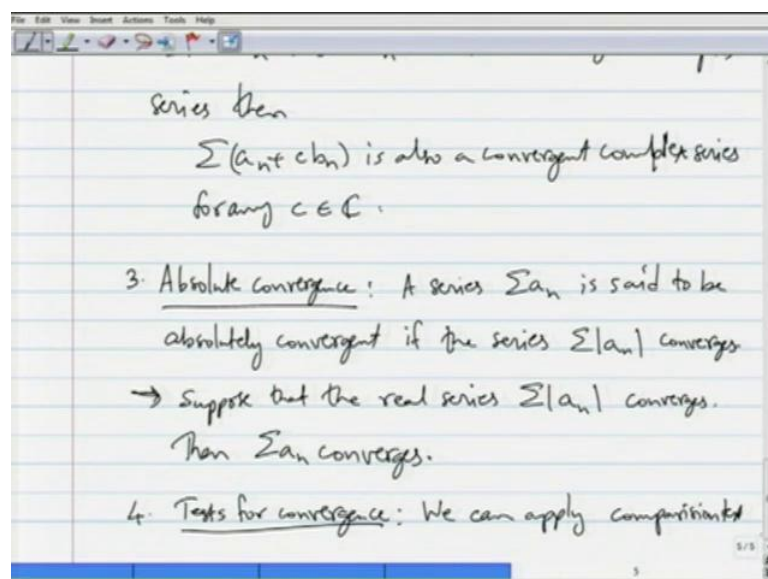 File Edit View Insert Actions Tools Help
series then
Σ(aₙ+ cbₙ) is also a convergent complex series
for any c ∈ ℂ.
3. Absolute convergence : A series Σaₙ is said to be
absolutely convergent if the series Σ|aₙ| converges
→ Suppose that the real series Σ|aₙ| converges.
Then Σaₙ converges.
4. Tests for convergence : We can apply
5/5
5